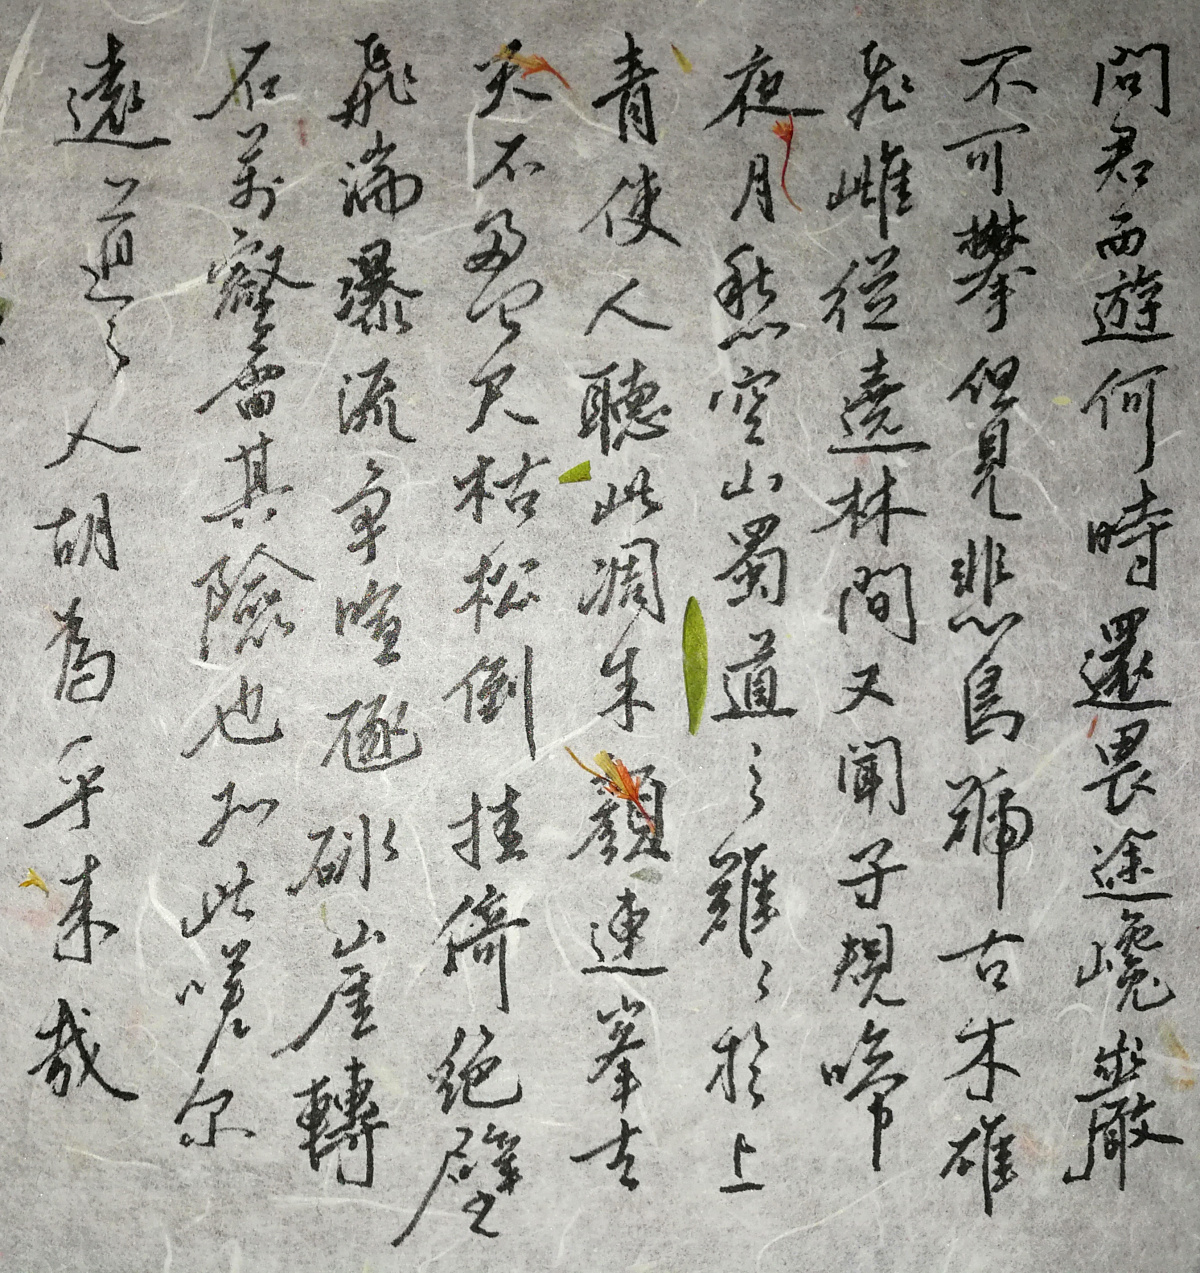 問君西遊何時還畏途巉巖
不可攀但見悲鳥號古木雄
飛雌從遶林間又聞子規啼
夜月愁空山蜀道之難〻於上
青使人聽此凋朱顏連峯去
天不盈尺枯松倒挂倚絕壁
飛湍瀑流争喧豗砯崖轉
石萬壑雷其險也如此嗟尔
遠道之人胡為乎來哉